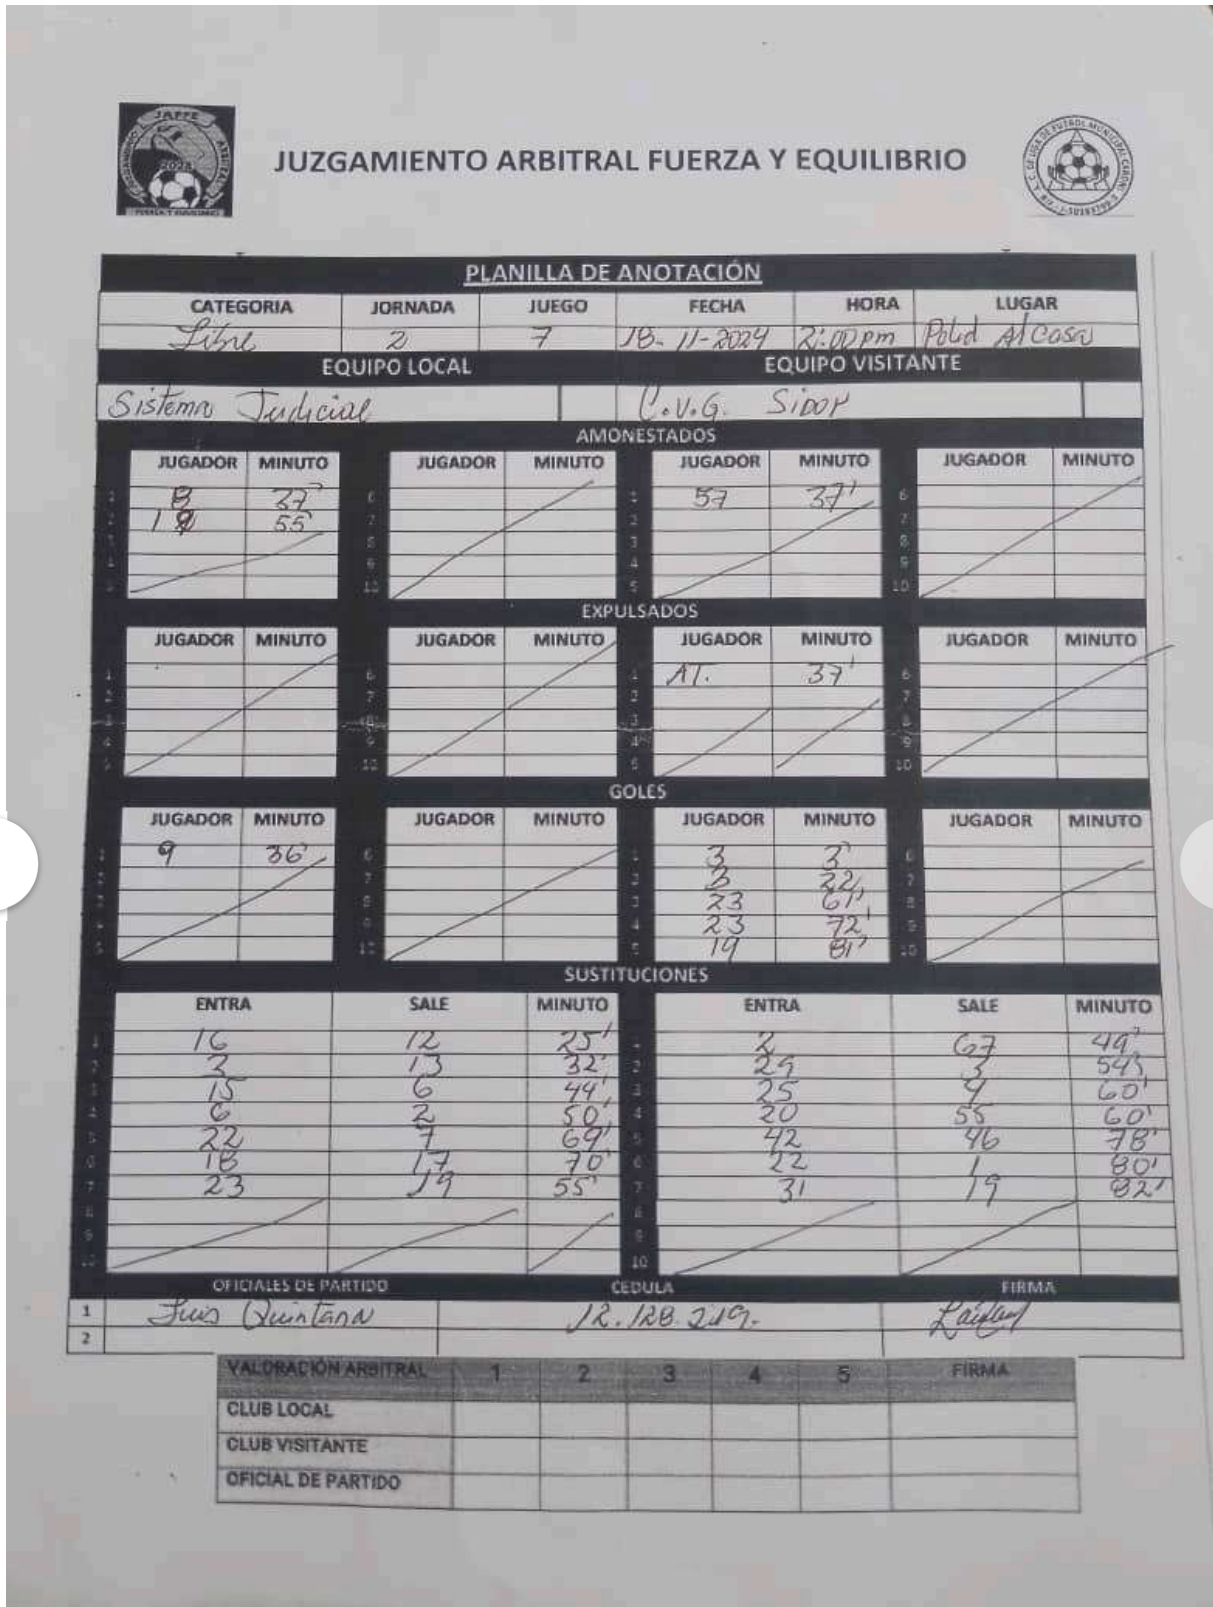 JAFFE
2024
FUERZA Y EQUILIBRIO
JUZGAMIENTO ARBITRAL FUERZA Y EQUILIBRIO
PLANILLA DE ANOTACIÓN
CATEGORIA JORNADA JUEGO FECHA HORA LUGAR
Libre 2 7 18-11-2024 2:00pm Polid Alcasa
EQUIPO LOCAL EQUIPO VISITANTE
Sistema Judicial C.V.G. Sidor
AMONESTADOS
JUGADOR MINUTO JUGADOR MINUTO JUGADOR MINUTO JUGADOR MINUTO
1 8 37' 6 1 57 37' 6
2 55' 7 2 7
3 8 3 8
4 9 4 9
5 10 5 10
EXPULSADOS
JUGADOR MINUTO JUGADOR MINUTO JUGADOR MINUTO JUGADOR MINUTO
1 6 1 AT. 37' 6
2 7 2 7
3 8 3 8
4 9 4 9
5 10 5 10
GOLES
JUGADOR MINUTO JUGADOR MINUTO JUGADOR MINUTO JUGADOR MINUTO
1 9 36' 6 1 3 3' 6
2 7 2 3 22' 7
3 8 3 23 61' 8
4 9 4 23 72' 9
5 10 5 19 81' 10
SUSTITUCIONES
ENTRA SALE MINUTO ENTRA SALE MINUTO
1 16 12 25' 1 2 67 49'
2 3 13 32' 2 29 3 54'
3 15 6 44' 3 25 4 60'
4 6 2 50' 4 20 55 60'
5 22 7 69' 5 42 46 78'
6 18 17 70' 6 22 1 80'
7 23 19 55' 7 31 19 82'
8 8
9 9
10 10
OFICIALES DE PARTIDO CEDULA FIRMA
1 Luis Quintana 12.128.219.
2
VALORACIÓN ARBITRAL 1 2 3 4 5 FIRMA
CLUB LOCAL
CLUB VISITANTE
OFICIAL DE PARTIDO